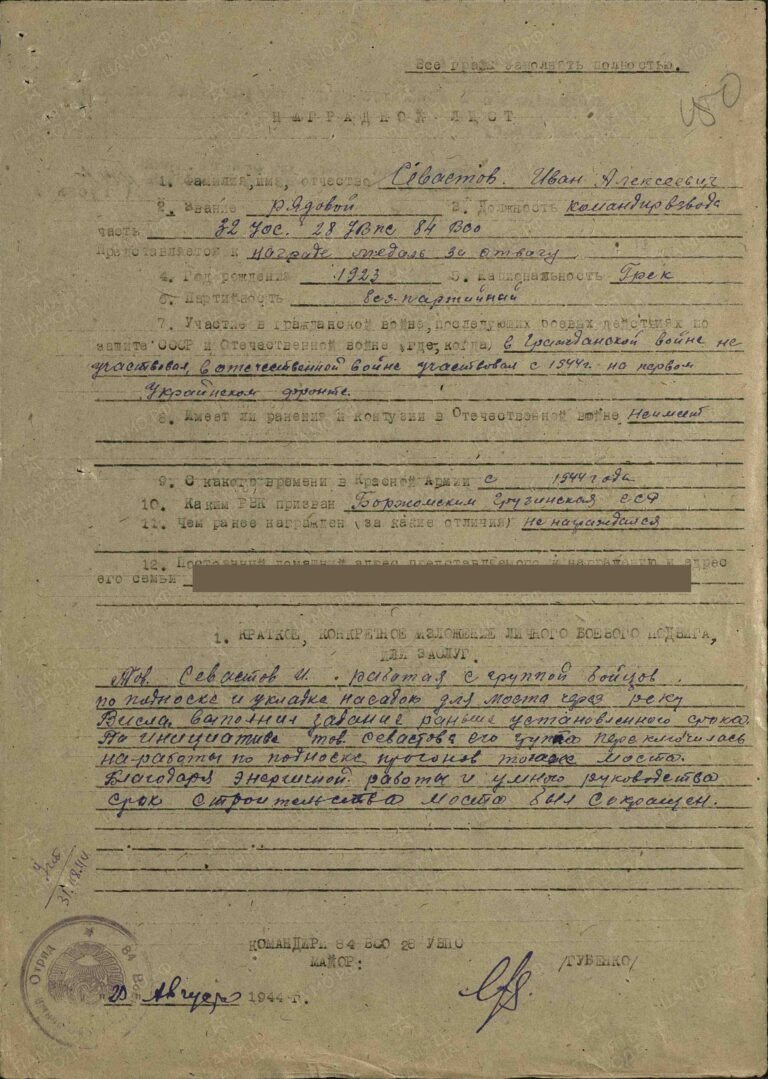 Все графы заполнять полностью.
450
НАГРАДНОЙ ЛИСТ
1. Фамилия, имя, отчество Севастов. Иван Алексеевич
2. Звание рядовой 3. Должность командир взвода
часть 32 УОС. 28 УВПС 84 ВСО
Представляется к награде медаль за отвагу
4. Год рождения 1923 5. Национальность Грек
6. Партийность без-партийный
7. Участие в гражданской войне, последующих боевых действиях по
защите СССР и Отечественной войне (где, когда) в Гражданской войне не
участвовал, в отечественной войне участвовал с 1944г. на первом
Украинском фронте.
8. Имеет ли ранения и контузии в Отечественной войне Неимеет
9. С какого времени в Красной Армии с 1944 года
10. Каким РВК призван Боржомским Грузинская ССР
11. Чем ранее награжден (за какие отличия) не награждался
12. Постоянный домашний адрес представляемого к награждению и адрес
его семьи
1. КРАТКОЕ, КОНКРЕТНОЕ ИЗЛОЖЕНИЕ ЛИЧНОГО БОЕВОГО ПОДВИГА,
ИЛИ ЗАСЛУГ.
Тов. Севастов И. работая с группой бойцов
по подноске и укладке насадок для моста через реку
Висла. выполнил задание раньше установленного срока.
По инициативе тов. Севастова его группа переключилась
на работы по подноске прогонов того же моста.
Благодаря энергичной работы и умного руководства
срок строительства моста был сокращен.
31.08.44
КОМАНДИРИ 84 ВСО 28 УВПС
МАЙОР: /ГУБЕНКО/
"20" Август 1944 г.
Отряд 84 Вое